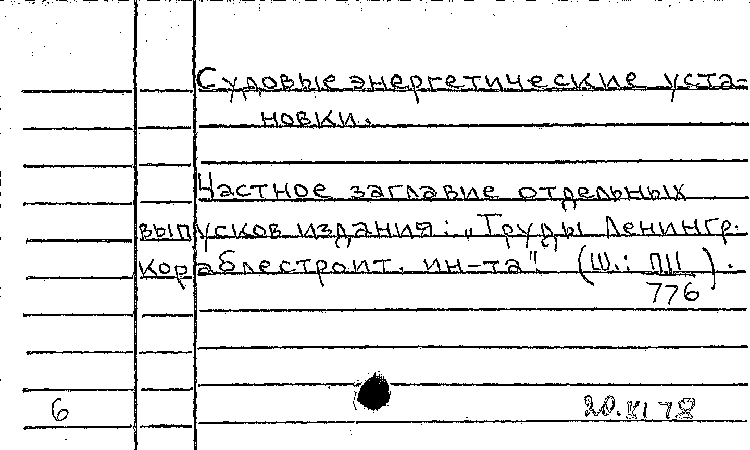 Судовые энергетические уста-
новки.
Частное заглавие отдельных
выпусков издания: „Труды Ленингр.
кораблестроит. ин-та". (Ш.: ПII/776).
6
20.XI 78